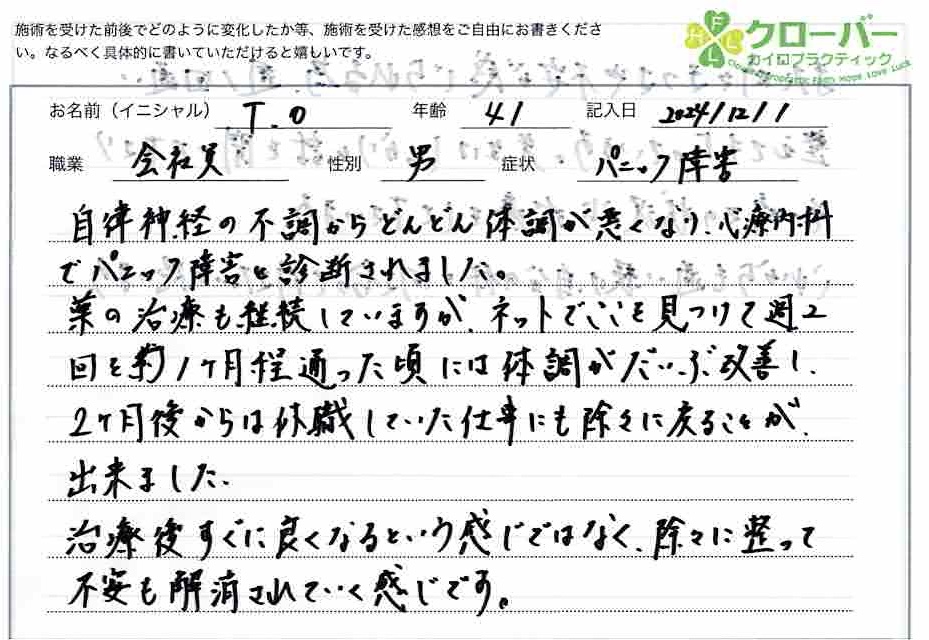 施術を受けた前後でどのように変化したか等、施術を受けた感想をご自由にお書きくださ
い。なるべく具体的に書いていただけると嬉しいです。
HFLL
クローバー
カイロプラクティック
お名前（イニシャル） T.O 年齢 41 記入日 2024/12/1
職業 会社員 性別 男 症状 パニック障害
自律神経の不調からどんどん体調が悪くなり、心療内科
でパニック障害と診断されました。
薬の治療も継続していますが、ネットでここを見つけて週2
回を約1ヶ月程通った頃には体調がだいぶ改善し、
2ヶ月後からは休職していた仕事にも除々に戻ることが、
出来ました、
治療後すぐに良くなるという感じではなく、除々に整って
不安も解消されていく感じです。